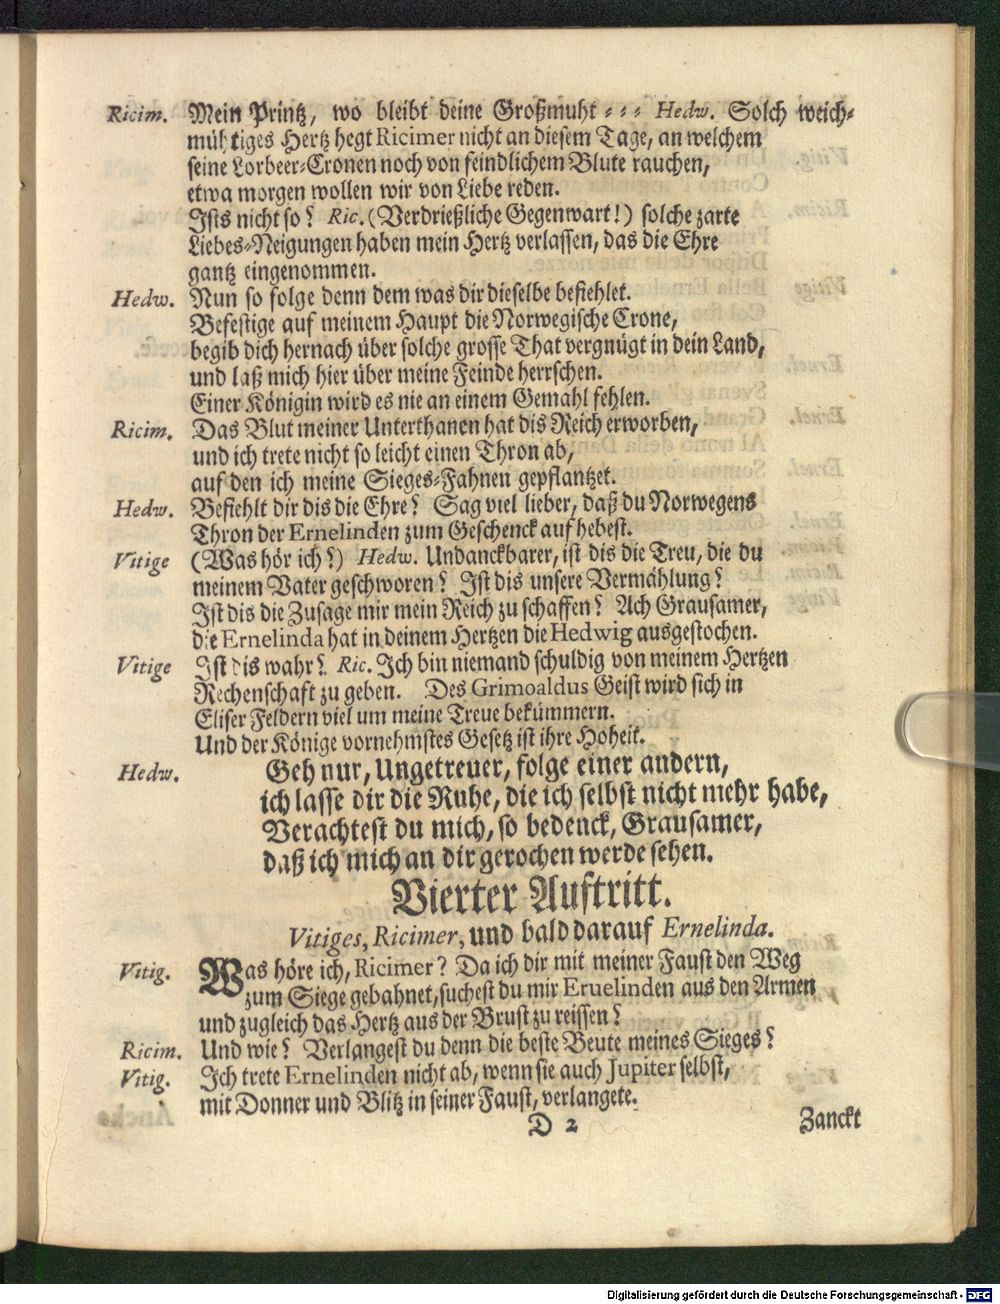 Ricim. Mein Printz, wo bleibt deine Großmuht ⸗ ⸗ ⸗ Hedw. Solch weich⸗
mühtiges Hertz hegt Ricimer nicht an diesem Tage, an welchem
seine Lorbeer⸗Cronen noch von feindlichem Blute rauchen,
etwa morgen wollen wir von Liebe reden.
Ists nicht so? Ric. (Verdrießliche Gegenwart!) solche zarte
Liebes⸗Neigungen haben mein Hertz verlassen, das die Ehre
gantz eingenommen.
Hedw. Nun so folge denn dem was dir dieselbe befiehlet.
Befestige auf meinem Haupt die Norwegische Crone,
begib dich hernach über solche grosse That vergnügt in dein Land,
und laß mich hier über meine Feinde herrschen.
Einer Königin wird es nie an einem Gemahl fehlen.
Ricim. Das Blut meiner Unterthanen hat dis Reich erworben,
und ich trete nicht so leicht einen Thron ab,
auf den ich meine Sieges⸗Fahnen gepflantzet.
Hedw. Befiehlt dir dis die Ehre? Sag viel lieber, daß du Norwegens
Thron der Ernelinden zum Geschenck aufhebest.
Vitige (Was hör ich?) Hedw. Undanckbarer, ist dis die Treu, die du
meinem Vater geschworen? Ist dis unsere Vermählung?
Ist dis die Zusage mir mein Reich zu schaffen? Ach Grausamer,
die Ernelinda hat in deinem Hertzen die Hedwig ausgestochen.
Vitige Ist dis wahr? Ric. Ich bin niemand schuldig von meinem Hertzen
Rechenschaft zu geben. Des Grimoaldus Geist wird sich in
Eliser Feldern viel um meine Treue bekümmern.
Und der Könige vornehmstes Gesetz ist ihre Hoheit.
Hedw. Geh nur, Ungetreuer, folge einer andern,
ich lasse dir die Ruhe, die ich selbst nicht mehr habe,
Verachtest du mich, so bedenck, Grausamer,
daß ich mich an dir gerochen werde sehen.
Vierter Auftritt.
Vitiges, Ricimer, und bald darauf Ernelinda.
Vitig. Was höre ich, Ricimer? Da ich dir mit meiner Faust den Weg
zum Siege gebahnet, suchest du mir Eruelinden aus den Armen
und zugleich das Hertz aus der Brust zu reissen?
Ricim. Und wie? Verlangest du denn die beste Beute meines Sieges?
Vitig. Ich trete Ernelinden nicht ab, wenn sie auch Jupiter selbst,
mit Donner und Blitz in seiner Faust, verlangete.
D 2 Zanckt
Digitalisierung gefördert durch die Deutsche Forschungsgemeinschaft - DFG